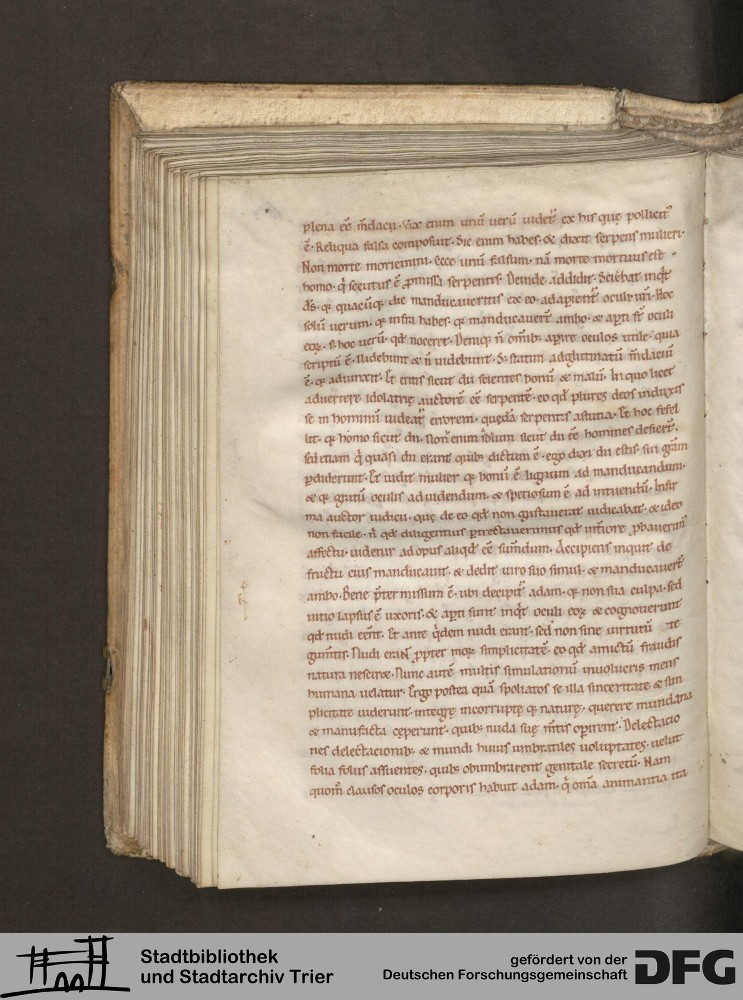 plena eē m̄dacii. Vix enim unū uerū uidet᷑ ex his quę pollicit᷑
ē. Reliqua falsa composuit. Sic enim habes. & dixit serpens mulieri.
Non morte moriemini. Ecce unū falsum. nā morte mortuus est
homo. q̇ secutus ē ꝓmissa serpentis. Deinde addidit. Sciebat inqͥt
dſ̄. qꝛ quacūq; die manducaueritis ex eo. adaperient᷑ oculi uri. Hoc
solū uerum. qꝛ infra habes. qꝛ manducauer̄ ambo. & apti st̄ oculi
eoꝝ. s; hoc uerū. qd̄ noceret. Deniq; n̄ om̄ib; apire oculos utile. quia
scriptū ē. Uidebunt & n̄ uidebunt. S; statim adglutinatū m̄daciū
ē. qꝛ adiunxit. Et eritis sicut dii scientes bonū & malū. In quo licet
aduertere idolatrię auctorē eē serpentē. eo qd̄ plures deos induxis
se in hominū uideat᷑ errorem. quedā serpentis astutia. Et hoc fefel
lit. qꝛ homo sicut dii. Non enim solum sicut dii eē homines desier̄.
sed etiam q̇ quasi dii erant quib; dictum ē. ego dixi dii estis. sui grām
ꝑdiderunt. Et uidit mulier qꝛ bonū ē lignum ad manducandum.
& qꝛ gratū oculis ad uidendum. & speciosum ē ad intuendū. Infir
ma auctor iudicii. quę de eo qd̄ non gustauerat iudicabat. & ideo
non facile. n̄ qd̄ diligentius ꝑtractauerimus qd̄ int̄iore ꝓbauerim᷒
affectu. uidetur ad opus aliqd̄ eē sum̄dum. Accipiens inquit de
fructu eius manducauit. & dedit uiro suo simul. & manducauer̄
ambo. Bene p̄termissum ē. ubi decipit᷑ adam. qꝛ non sua culpa. sed
uitio lapsus ē uxoris. & apti sunt inqͥt oculi eoꝝ & cognouerunt
qd̄ nudi eēnt. Et ante q̇dem nudi erant. sed non sine uirtutū te
gum̄tis. Nudi erant ꝓpter moꝝ simplicitatē. eo qd̄ amictū fraudis
natura nesciret. Nunc autē multis simulationū inuolucris mens
humana uelatur. Ergo postea quā spoliatos se illa sinceritate & sim
plicitate uiderunt. integrę incorruptę q; naturę. querere mundana
& manufacta ceperunt. quib; nuda suę m̄tis opirent. Delectacio
nes delectacionib; & mundi huius umbratiles uoluptates. uelut
folia foliis assuentes. quib; obumbrarent genitale secretū. Nam
quom̄ clausos oculos corporis habuit adam. q̇ om̄a animantia ita
Stadtbibliothek
und Stadtarchiv Trier
gefördert von der
Deutschen Forschungsgemeinschaft
DFG